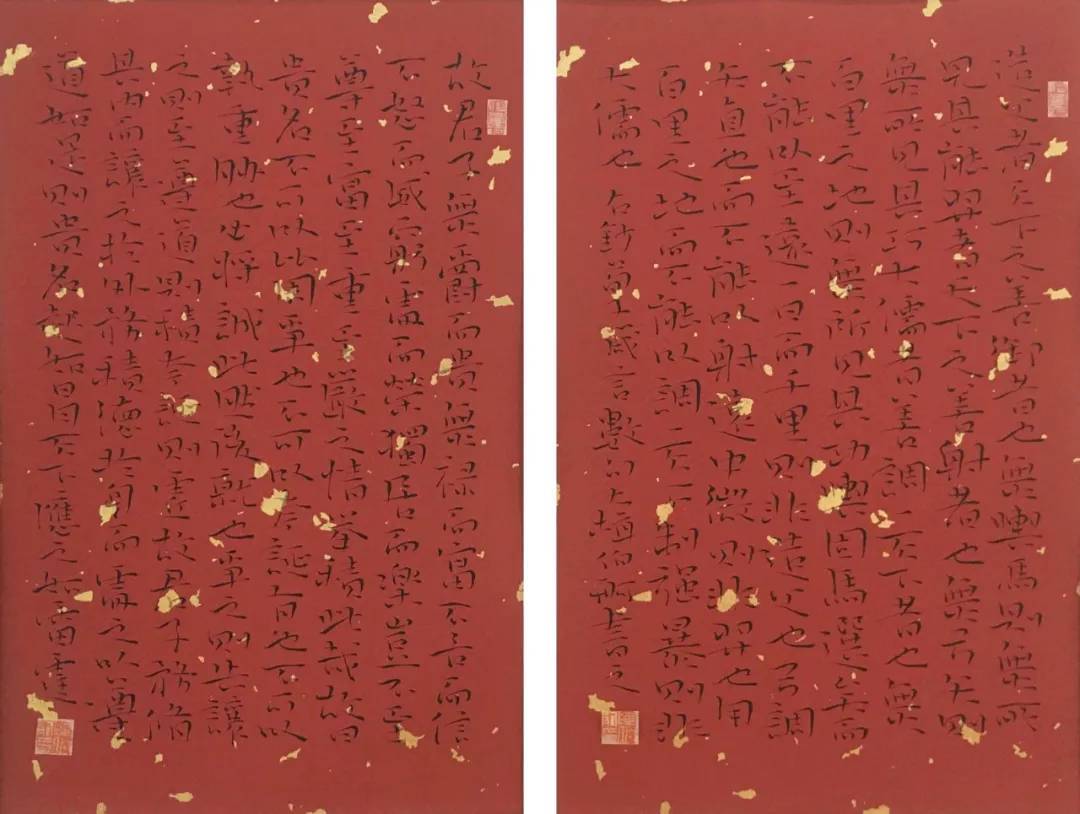 故君子無爵而貴無祿而富不言而信
不怒而威窮處而榮獨居而樂豈不至
尊至富至重至嚴之情舉積此哉故曰
貴名不可以比周爭也不可以夸誕有也不可以
埶重脅也必將誠此然後就也爭之則失讓
之則至遵道則積夸誕則虛故君子務脩
其內而讓之於外務積德於身而處之以遵
道如是則貴名起如日月天下應之如雷霆
造父者天下之善御者也無輿馬則無所
見其能羿者天下之善射者也無弓矢則
無所見其巧大儒者善調一天下者也無
百里之地則無所見其功輿固馬選矣而
不能以至遠一日而千里則非造父也弓調
矢直也而不能以射遠中微則非羿也用
百里之地而不能以調一天下制彊暴則非
大儒也 右鈔荀子箴言數句 書之